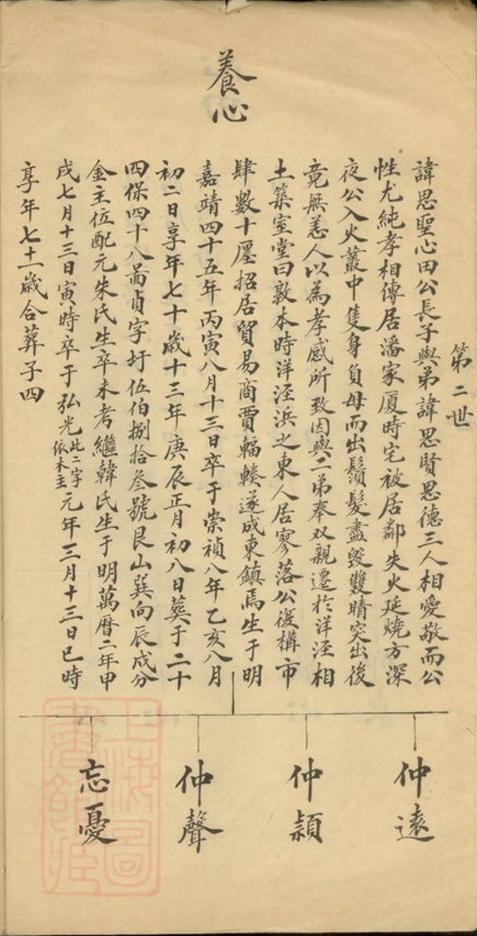 第二世
養心
諱思聖心田公長子與弟諱思賢思德三人相愛敬而公
性尤純孝相傳居潘家厦時宅被居鄰失火延燒方深
夜公入火叢中隻身負母而出鬚髮盡毀雙睛突出後
竟無恙人以為孝感所致因與二弟奉双親遷於洋涇相
土築室堂曰敦本時洋涇浜之東人居寥落公復構市
肆數十廛招居貿易商賈輻輳遂成東鎮焉生于明
嘉靖四十五年丙寅八月十三日卒于崇禎八年乙亥八月
初二日享年七十歲十三年庚辰正月初八日葬于二十
四保四十八啚貞字圩伍伯捌拾叁號艮山巽向辰戌分
金主位配元朱氏生卒未考繼韓氏生于明萬曆二年甲
戌七月十三日寅時卒于弘光此二字依木主元年三月十三日巳時
享年七十二歲合葬子四
仲遠
仲穎
仲聲
忘憂
上海圖書館藏